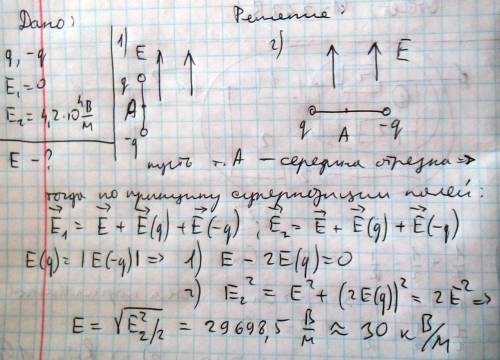 Дано:
Решение:
q, -q
E₁=0
E₂=4,2·10⁴ В/м
E - ?
1) E
q
A
-q
2) E
q A -q
пусть т. A — середина отрезка =>
тогда по принципу суперпозиции полей:
E⃗₁ = E⃗ + E⃗(q) + E⃗(-q) ; E⃗₂ = E⃗ + E⃗(q) + E⃗(-q)
E(q) = |E(-q)| => 1) E - 2E(q) = 0
2) E₂² = E² + (2E(q))² = 2E² =>
E = √E₂²/2 = 29698,5 В/м ≈ 30 кВ/м